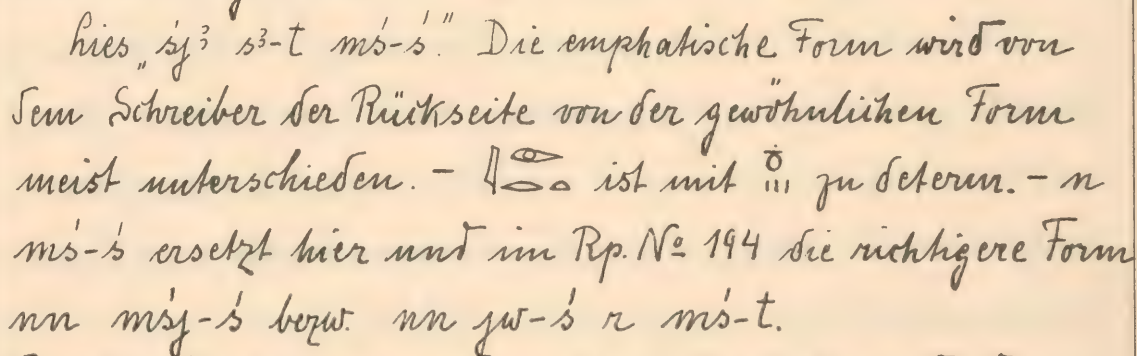 hies „śj³ s³-t mś-ś“. Die emphatische Form wird von
dem Schreiber der Rückseite von der gewöhnlichen Form
meist unterschieden. – 𓇋𓁹𓂋𓏏 ist mit 𓏌 zu determ. – n
mś-ś ersetzt hier und im Rp. No 194 die richtigere Form
nn mśj-ś bezw. nn jw-ś r mś-t.